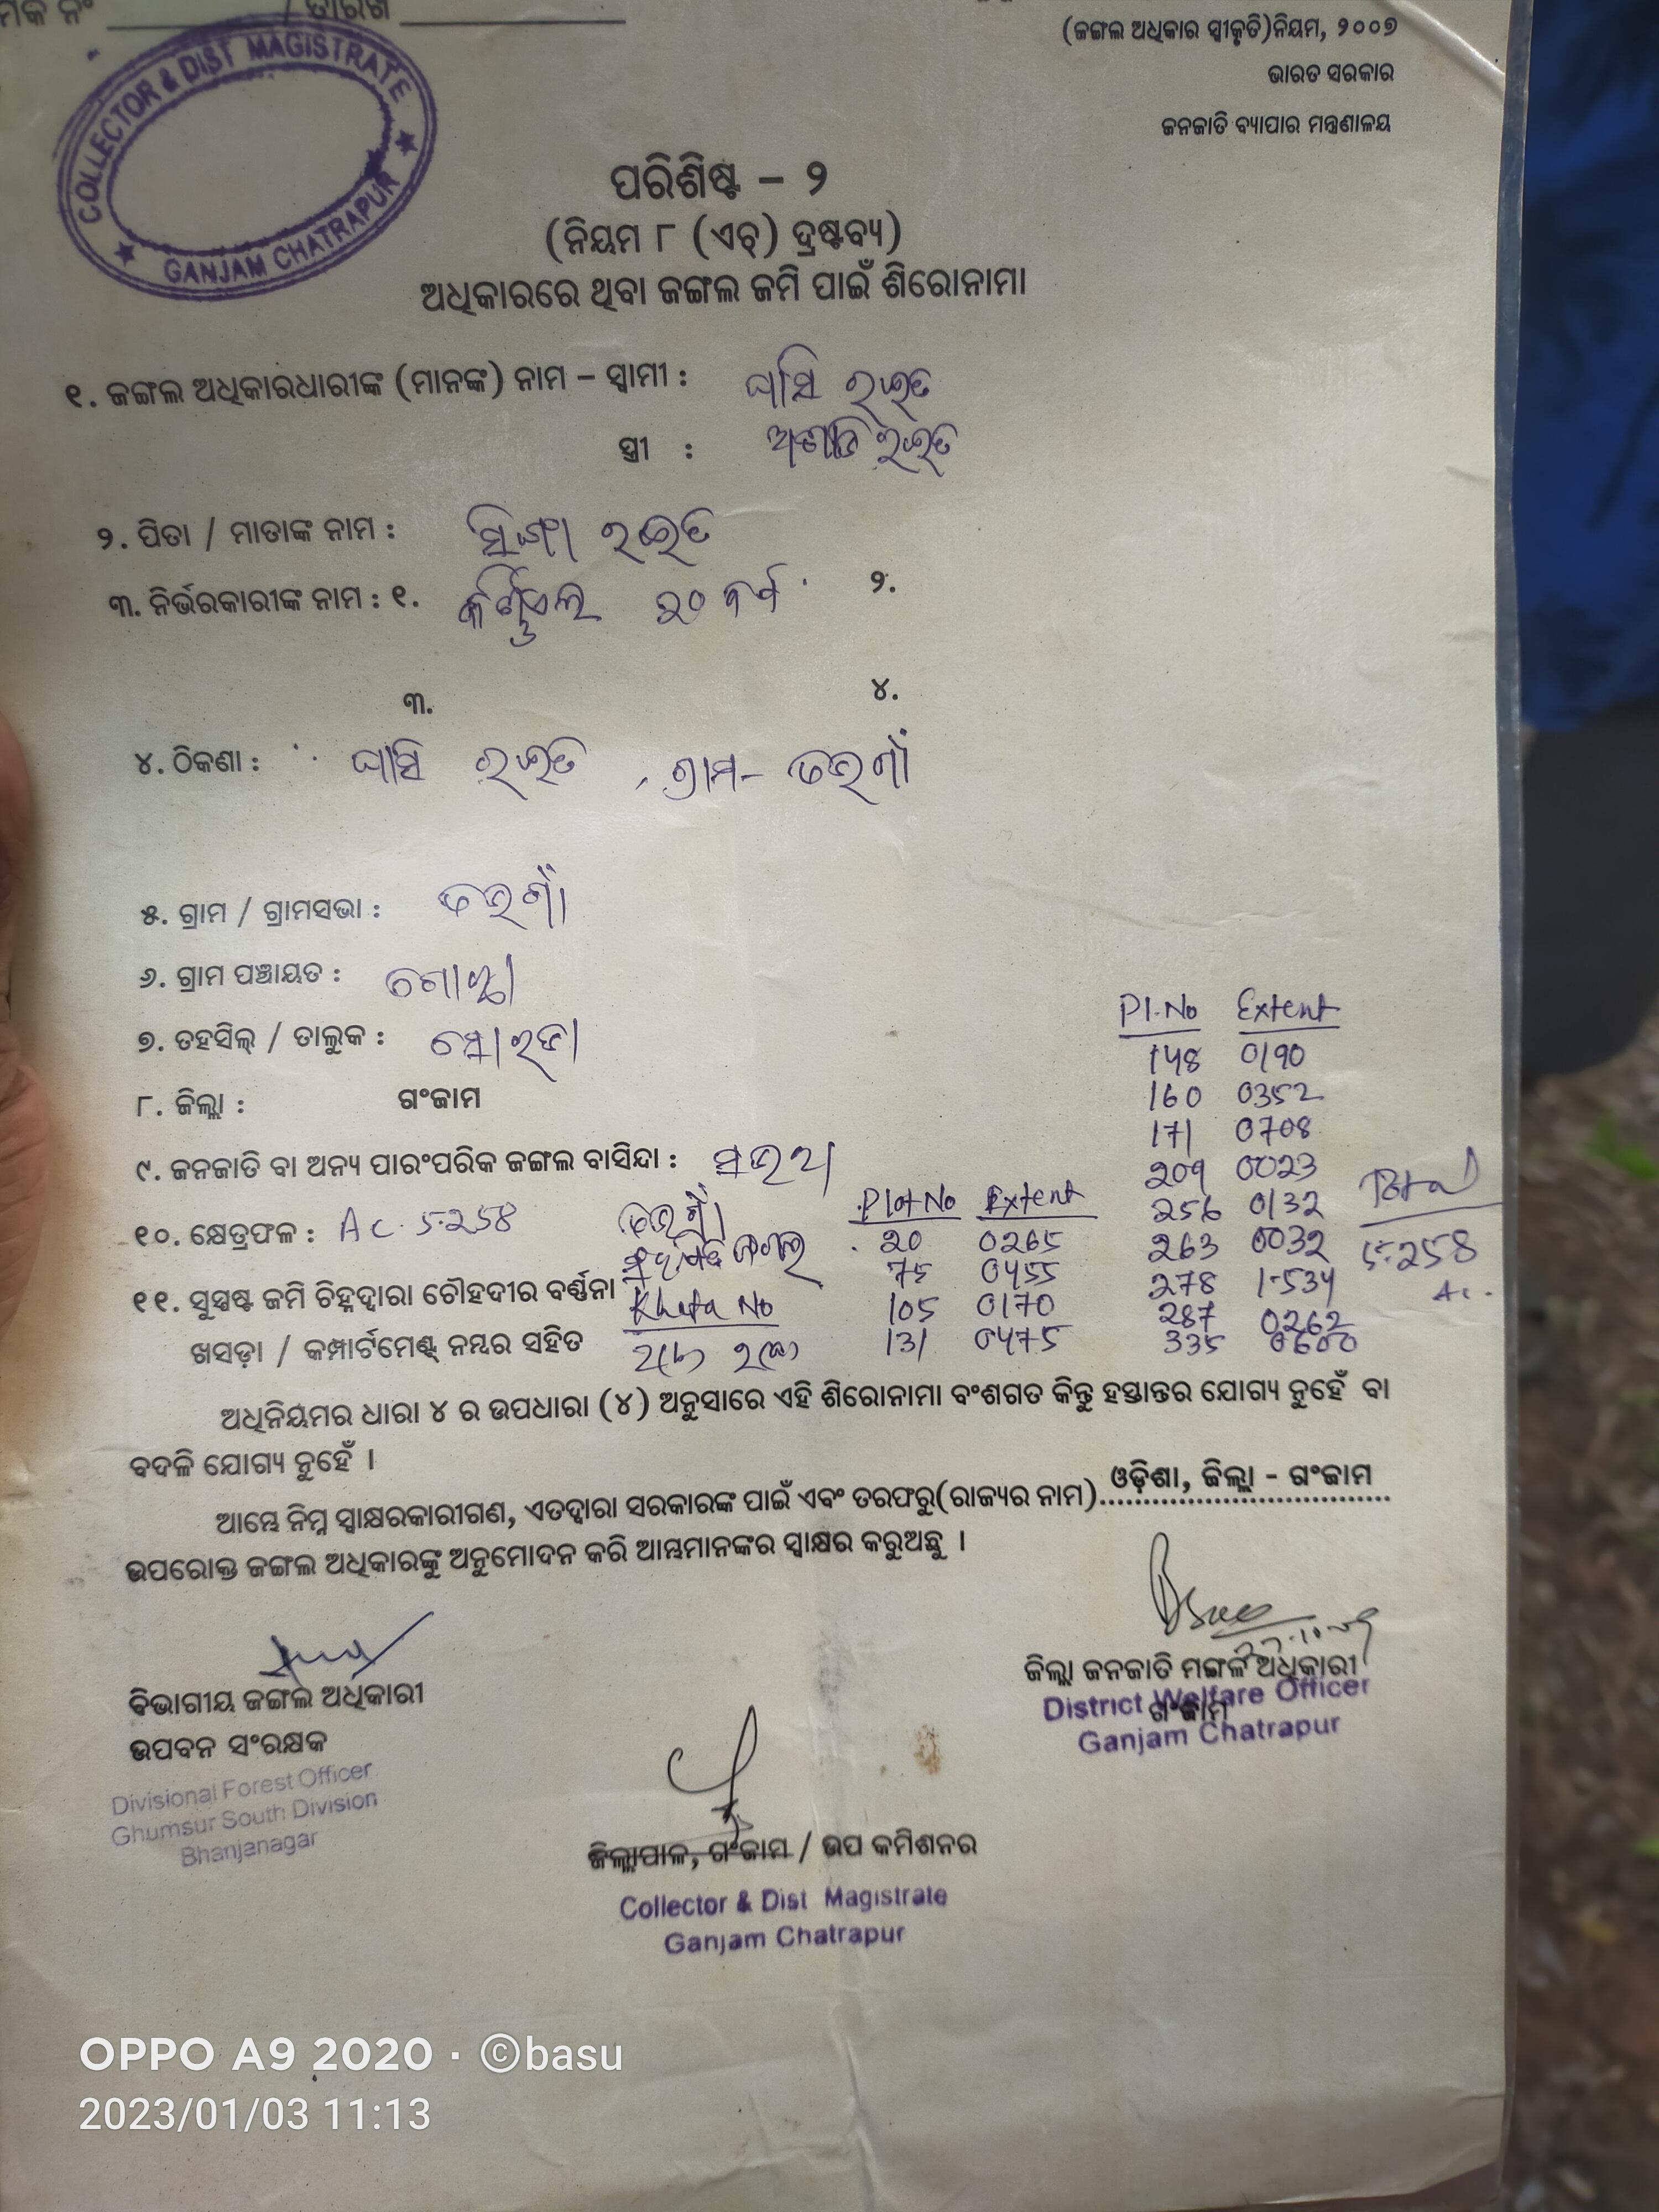 / ତାରିଖ
(ଜଙ୍ଗଲ ଅଧିକାର ସ୍ୱୀକୃତି)ନିୟମ, ୨୦୦୭
ଭାରତ ସରକାର
ଜନଜାତି ବ୍ୟାପାର ମନ୍ତ୍ରଣାଳୟ
COLLECTOR & DIST MAGISTRATE
GANJAM CHATRAPUR
ପରିଶିଷ୍ଟ – ୨
(ନିୟମ ୮ (ଏଚ୍) ଦ୍ରଷ୍ଟବ୍ୟ)
ଅଧିକାରରେ ଥିବା ଜଙ୍ଗଲ ଜମି ପାଇଁ ଶିରୋନାମା
୧. ଜଙ୍ଗଲ ଅଧିକାରଧାରୀଙ୍କ (ମାନଙ୍କ) ନାମ – ସ୍ୱାମୀ : ଘାସି ରଇତ
ସ୍ତ୍ରୀ : ରଇତ
୨. ପିତା / ମାତାଙ୍କ ନାମ : ରଇତ
୩. ନିର୍ଭରକାରୀଙ୍କ ନାମ : ୧. ୨୦ ବର୍ଷ ୨.
୩. ୪.
୪. ଠିକଣା : ଘାସି ରଇତ , ଗ୍ରାମ–
୫. ଗ୍ରାମ / ଗ୍ରାମସଭା :
୬. ଗ୍ରାମ ପଞ୍ଚାୟତ :
୭. ତହସିଲ୍ / ତାଲୁକ : ସୋରଡା
୮. ଜିଲ୍ଲା : ଗଂଜାମ
୯. ଜନଜାତି ବା ଅନ୍ୟ ପାରଂପରିକ ଜଙ୍ଗଲ ବାସିନ୍ଦା : ସଉରା
୧୦. କ୍ଷେତ୍ରଫଳ : Ac. 5.258
୧୧. ସୁସ୍ପଷ୍ଟ ଜମି ଚିହ୍ନଦ୍ୱାରା ଚୌହଦୀର ବର୍ଣ୍ଣନା
ଖସଡ଼ା / କମ୍ପାର୍ଟମେଣ୍ଟ୍ ନମ୍ବର ସହିତ
ଜଙ୍ଗଲ
Khata No
Plot No Extent
20 0265
75 0455
105 0170
131 0475
Pl.No Extent
148 0190
160 0352
171 0708
209 0023
256 0132
263 0032
278 1-534
287 0262
335 0600
Total
5.258
Ac.
ଅଧିନିୟମର ଧାରା ୪ ର ଉପଧାରା (୪) ଅନୁସାରେ ଏହି ଶିରୋନାମା ବଂଶଗତ କିନ୍ତୁ ହସ୍ତାନ୍ତର ଯୋଗ୍ୟ ନୁହେଁ ବା
ବଦଳି ଯୋଗ୍ୟ ନୁହେଁ ।
ଆମ୍ଭେ ନିମ୍ନ ସ୍ୱାକ୍ଷରକାରୀଗଣ, ଏତଦ୍ୱାରା ସରକାରଙ୍କ ପାଇଁ ଏବଂ ତରଫରୁ(ରାଜ୍ୟର ନାମ) ଓଡ଼ିଶା, ଜିଲ୍ଲା - ଗଂଜାମ
ଉପରୋକ୍ତ ଜଙ୍ଗଲ ଅଧିକାରଙ୍କୁ ଅନୁମୋଦନ କରି ଆମ୍ଭମାନଙ୍କର ସ୍ୱାକ୍ଷର କରୁଅଛୁ ।
ବିଭାଗୀୟ ଜଙ୍ଗଲ ଅଧିକାରୀ
ଉପବନ ସଂରକ୍ଷକ
Divisional Forest Officer
Ghumsur South Division
Bhanjanagar
ଜିଲ୍ଲା ଜନଜାତି ମଙ୍ଗଳ ଅଧିକାରୀ
ଗଂଜାମ
District Welfare Officer
Ganjam Chatrapur
ଜିଲ୍ଲାପାଳ, ଗଂଜାମ / ଉପ କମିଶନର
Collector & Dist Magistrate
Ganjam Chatrapur
OPPO A9 2020 · ©basu
2023/01/03 11:13